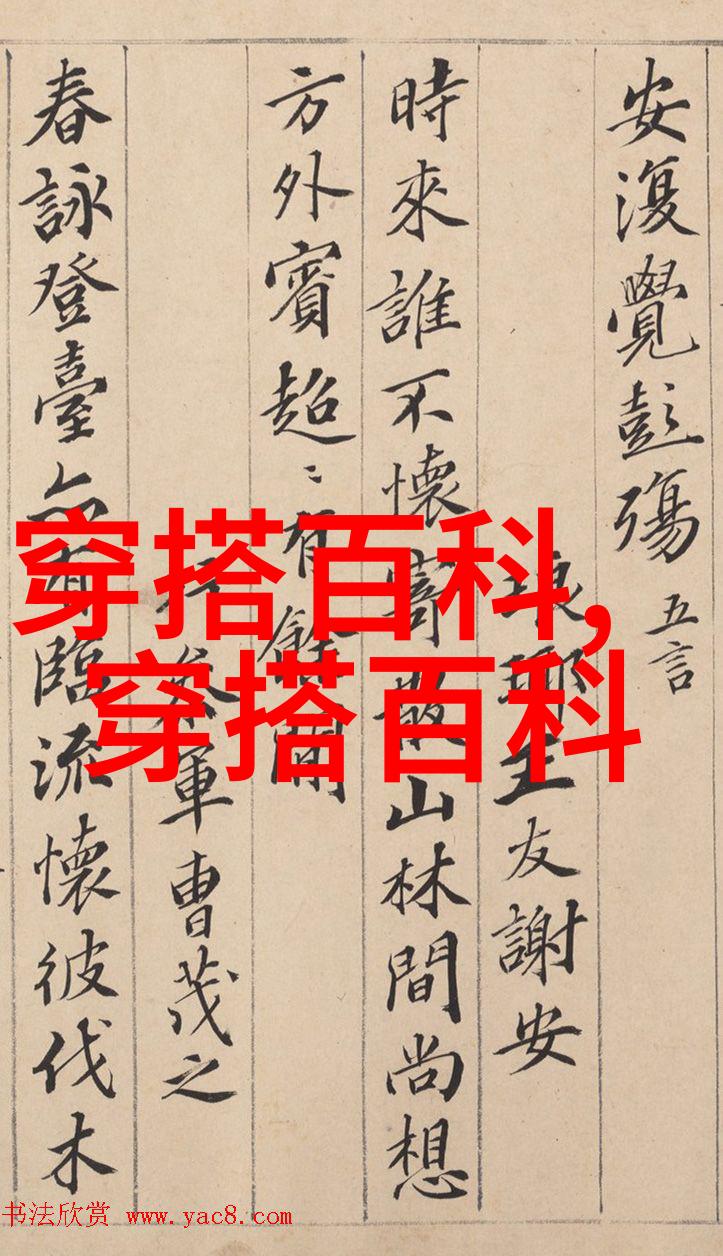 安復覺彭殤 五言
琅琊王友謝安
時來誰不懷寄散山林間尚想
方外賓超〻有餘閒
行參軍曹茂之
春詠登臺亦有臨流懷彼伐木
穿搭百科,
穿搭百科
书法欣赏 www.yac8.com